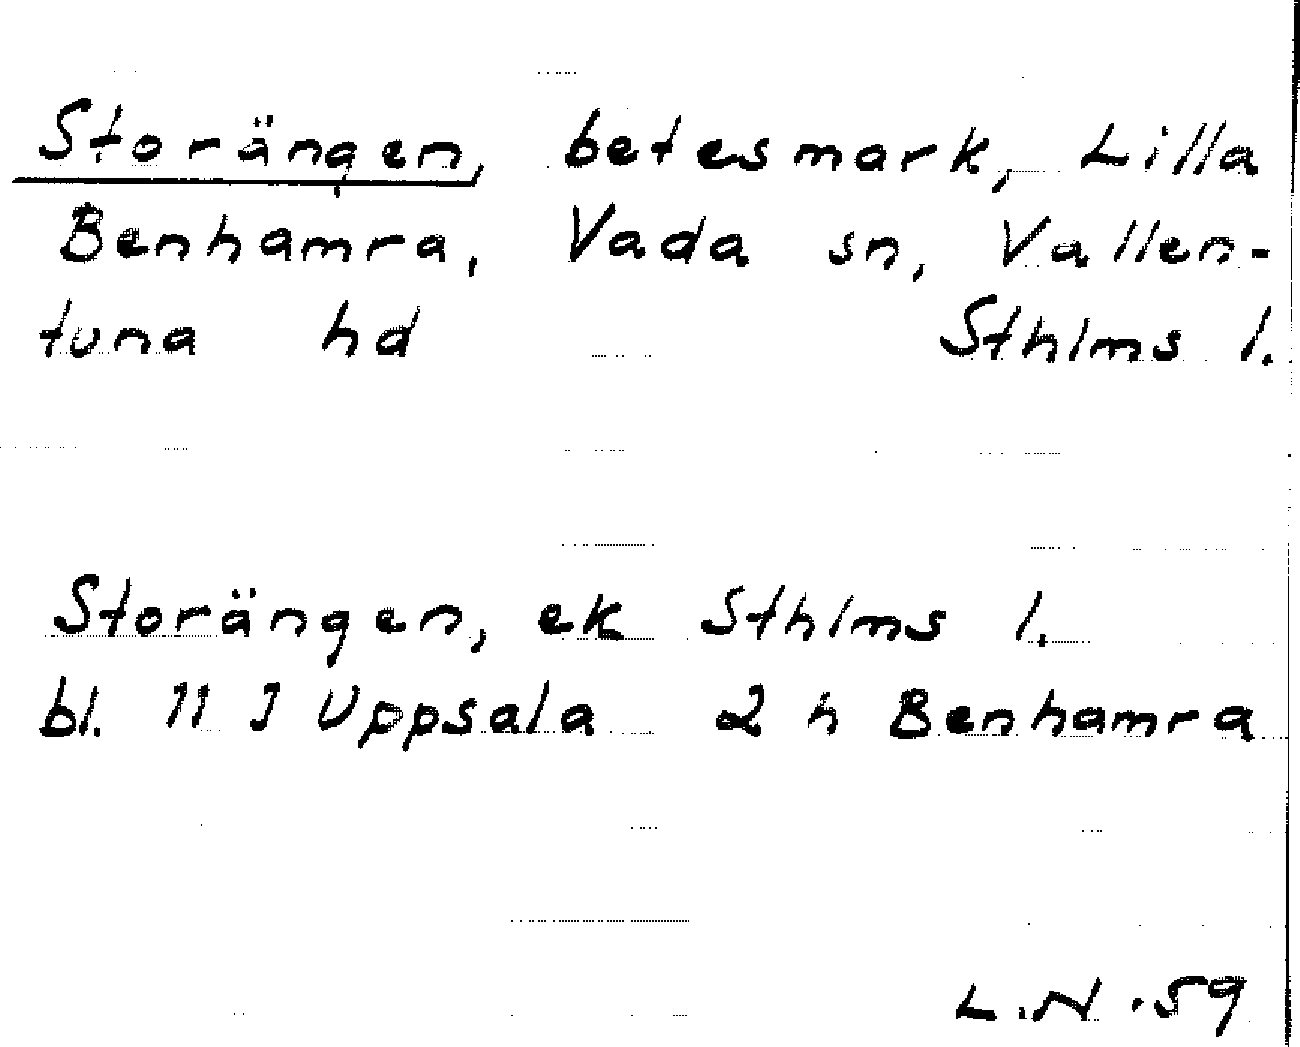 Storängen, betesmark, Lilla
Benhamra, Vada sn, Vallen-
tuna hd Sthlms l.
Storängen, ek Sthlms l.
bl. 11 J Uppsala 2 h Benhamra
L.N. 59